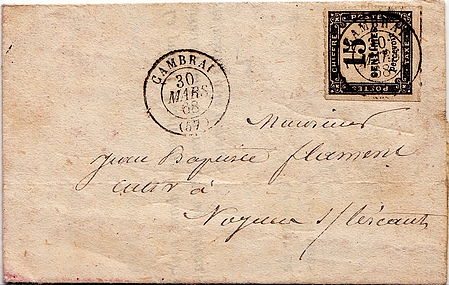 CAMBRAI
30
MARS
68
(57)
POSTES
CHIFFRE
15
CENTIMES
percevoir
TAXE
POSTES
CAMBRAI
30
68
Monsieur
Jean Baptiste flament
cultr à